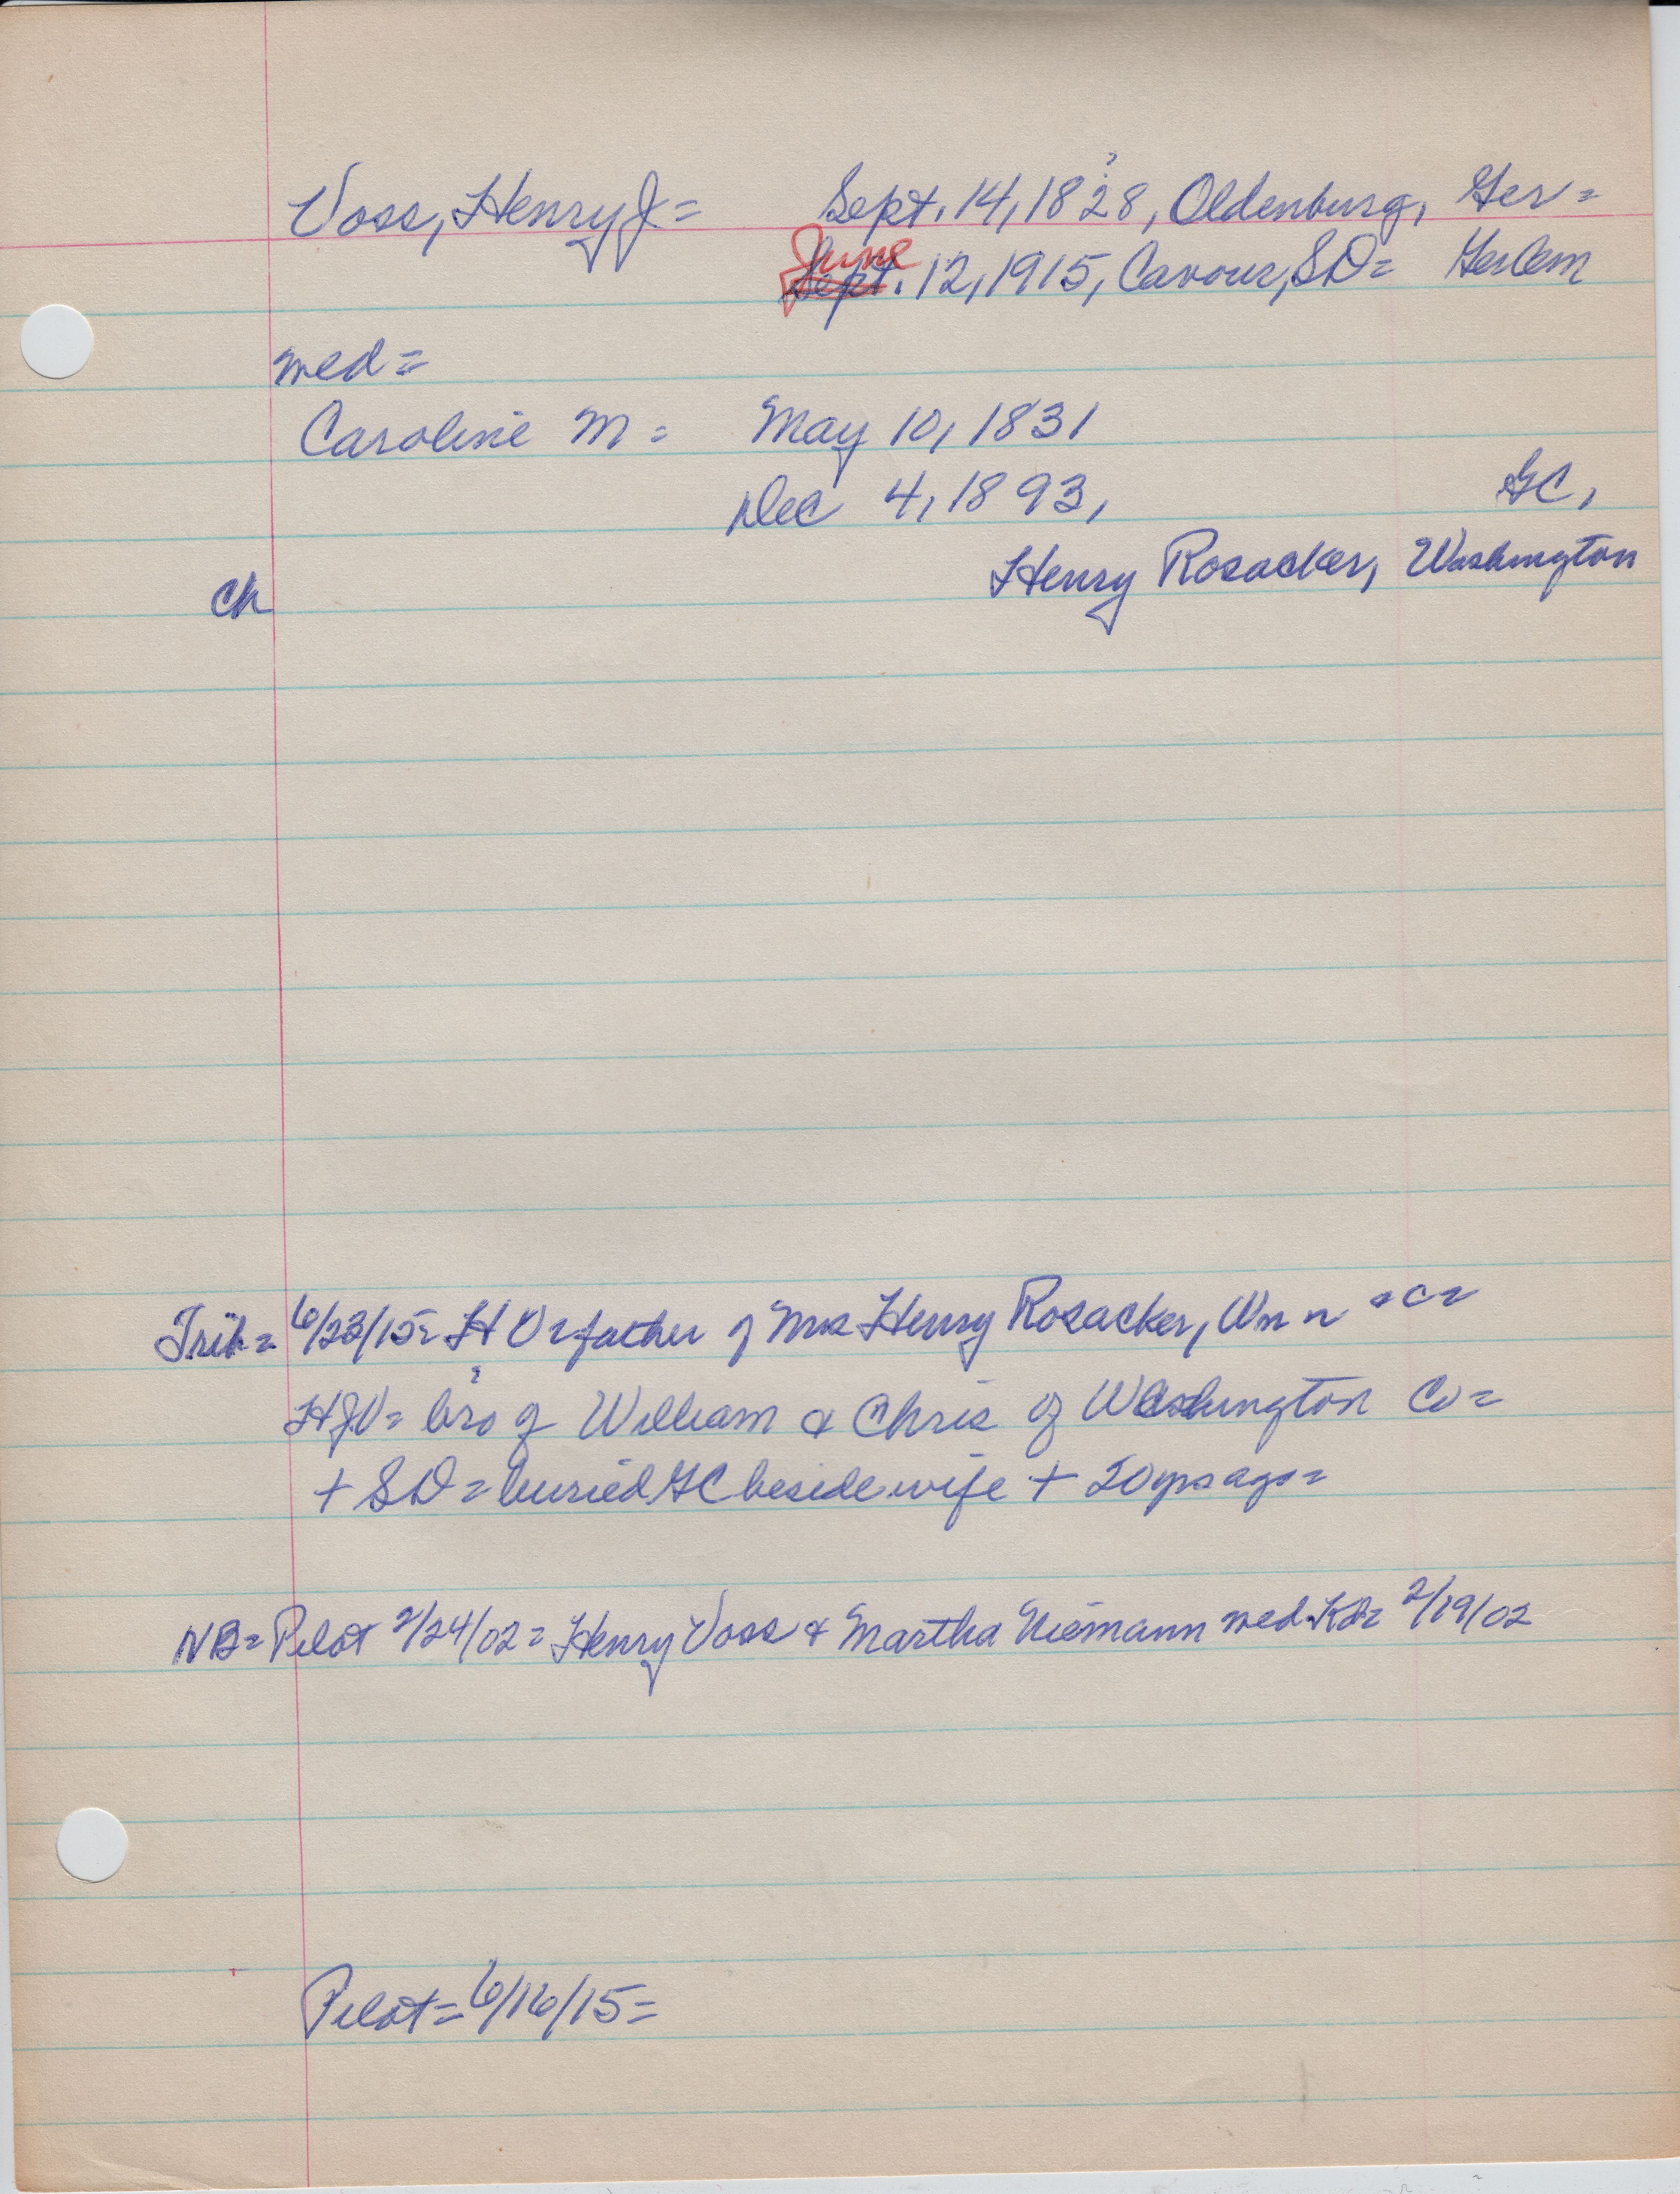 Voss, Henry J = Sept. 14, 1828, Oldenburg, Ger =
?
June
Sept. 12, 1915, Cavour, SD = GerCem
med =
Caroline M = May 10, 1831
Dec 4, 1893, GC,
Henry Rosacker, Washington
Ch
Trib = 6/23/15 = HV = father of Mrs Henry Rosacker, Wn n
HJV = bro of William & Chris of Washington Co =
?
+ SD = buried GC beside wife + 20 yrs ago =
NB = Pilot 2/24/02 = Henry Voss & Martha Niemann med 2/19/02
Pilot = 6/16/15 =